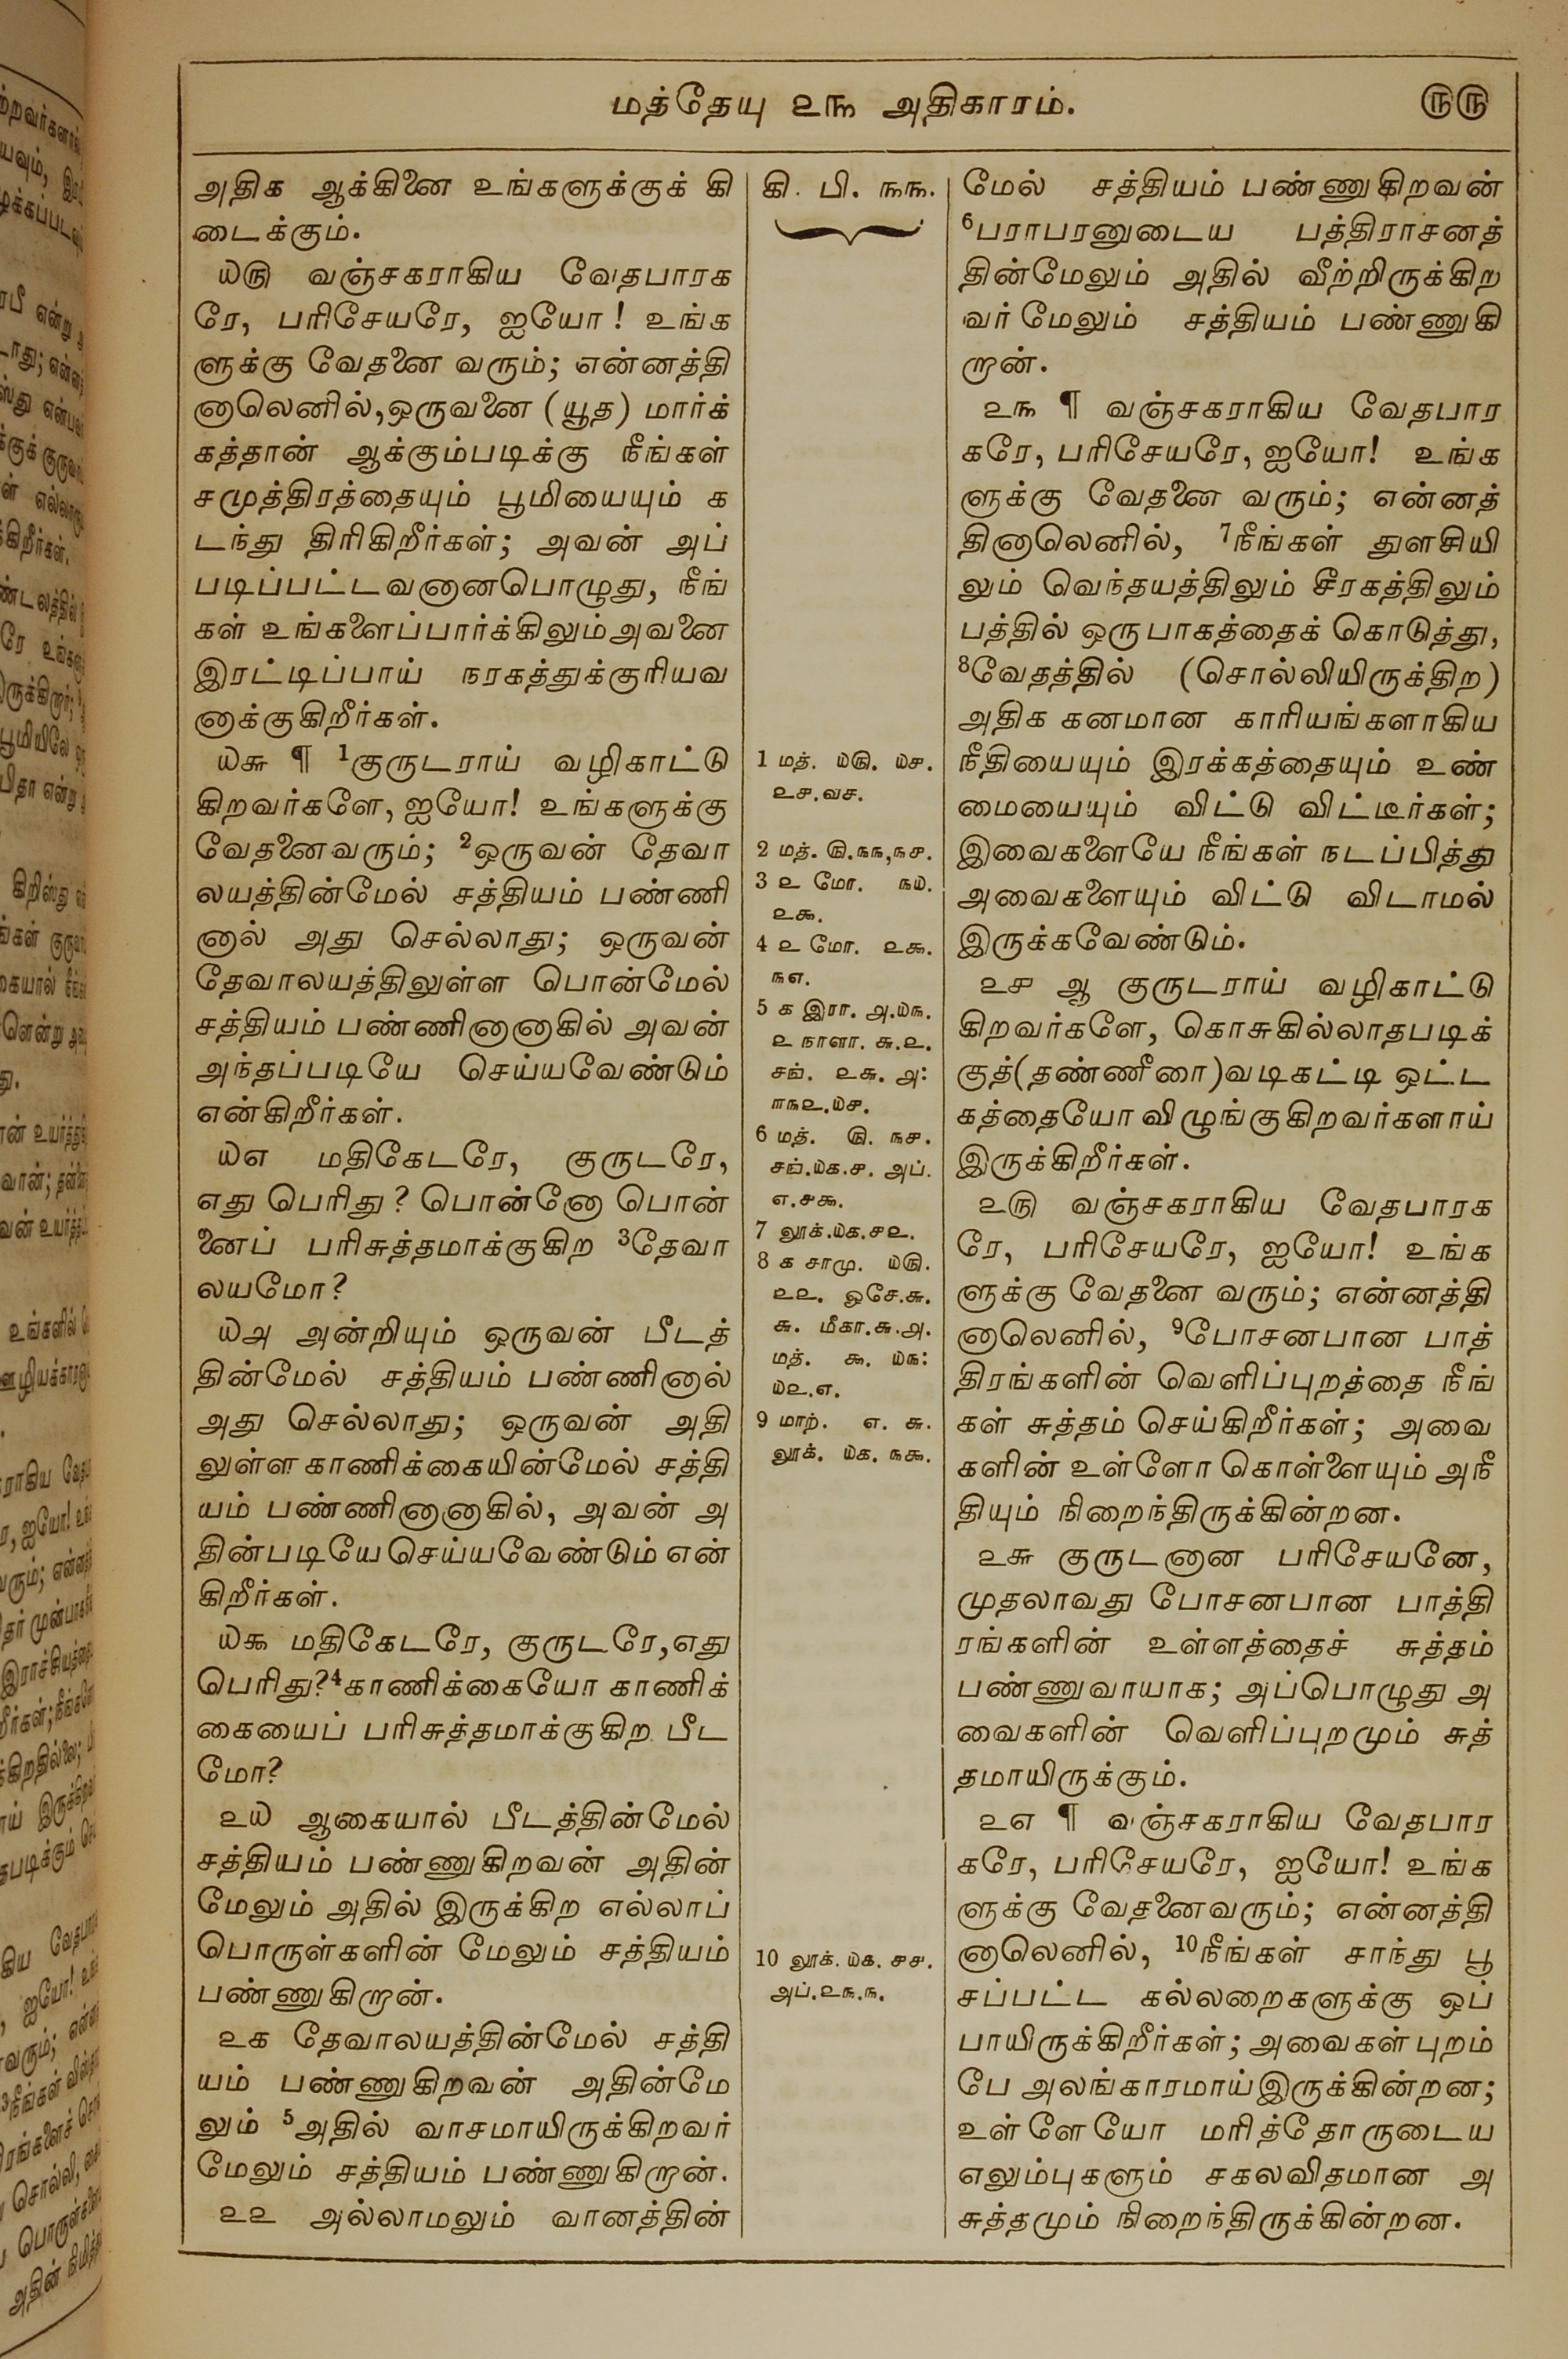 மத்தேயு ௨௩ அதிகாரம். ௫௫
அதிக ஆக்கினை உங்களுக்குக் கி
டைக்கும்.
௰௫ வஞ்சகராகிய வேதபாரக
ரே, பரிசேயரே, ஐயோ! உங்க
ளுக்கு வேதனை வரும்; என்னத்தி
னாலெனில்,ஒருவனை (யூத) மார்க்
கத்தான் ஆக்கும்படிக்கு நீங்கள்
சமுத்திரத்தையும் பூமியையும் க
டந்து திரிகிறீர்கள்; அவன் அப்
படிப்பட்டவனானபொழுது, நீங்
கள் உங்களைப்பார்க்கிலும்அவனை
இரட்டிப்பாய் நரகத்துக்குரியவ
னாக்குகிறீர்கள்.
௰௬ ¶ ¹குருடராய் வழிகாட்டு
கிறவர்களே, ஐயோ! உங்களுக்கு
வேதனைவரும்; ²ஒருவன் தேவா
லயத்தின்மேல் சத்தியம் பண்ணி
னால் அது செல்லாது; ஒருவன்
தேவாலயத்திலுள்ள பொன்மேல்
சத்தியம் பண்ணினானாகில் அவன்
அந்தப்படியே செய்யவேண்டும்
என்கிறீர்கள்.
௰௭ மதிகேடரே, குருடரே,
எது பெரிது? பொன்னோ பொன்
னைப் பரிசுத்தமாக்குகிற ³தேவா
லயமோ?
௰௮ அன்றியும் ஒருவன் பீடத்
தின்மேல் சத்தியம் பண்ணினால்
அது செல்லாது; ஒருவன் அதி
லுள்ள காணிக்கையின்மேல் சத்தி
யம் பண்ணினானாகில், அவன் அ
தின்படியே செய்யவேண்டும் என்
கிறீர்கள்.
௰௯ மதிகேடரே, குருடரே,எது
பெரிது?⁴காணிக்கையோ காணிக்
கையைப் பரிசுத்தமாக்குகிற பீட
மோ?
௨௰ ஆகையால் பீடத்தின்மேல்
சத்தியம் பண்ணுகிறவன் அதின்
மேலும் அதில் இருக்கிற எல்லாப்
பொருள்களின் மேலும் சத்தியம்
பண்ணுகிறான்.
௨௧ தேவாலயத்தின்மேல் சத்தி
யம் பண்ணுகிறவன் அதின்மே
லும் ⁵அதில் வாசமாயிருக்கிறவர்
மேலும் சத்தியம் பண்ணுகிறான்.
௨௨ அல்லாமலும் வானத்தின்
கி. பி. ௩௩.
1 மத். ௰௫. ௰௪.
௨௪.வச.
2 மத். ௫.௩௩,௩௪.
3 ௨ மோ. ௩௰.
௨௯.
4 ௨ மோ. ௨௯.
௩௭.
5 ௧ இரா. ௮.௰௩.
௨ நாளா. ௬.௨.
சங். ௨௬. ௮:
௱௩௨.௰௪.
6 மத். ௫. ௩௪.
சங்.௰௧.௪. அப்.
௭.௪௯.
7 லூக்.௰௧.௪௨.
8 ௧ சாமு. ௰௫.
௨௨. ஓசே.௬.
௬. மீகா.௬.௮.
மத். ௯. ௰௩:
௰௨.௭.
9 மாற். ௭. ௬.
லூக். ௰௧. ௩௯.
10 லூக். ௰௧. ௪௪.
அப்.௨௩.௩.
மேல் சத்தியம் பண்ணுகிறவன்
⁶பராபரனுடைய பத்திராசனத்
தின்மேலும் அதில் வீற்றிருக்கிற
வர்மேலும் சத்தியம் பண்ணுகி
றான்.
௨௩ ¶ வஞ்சகராகிய வேதபார
கரே, பரிசேயரே, ஐயோ! உங்க
ளுக்கு வேதனை வரும்; என்னத்
தினாலெனில், ⁷நீங்கள் துளசியி
லும் வெந்தயத்திலும் சீரகத்திலும்
பத்தில் ஒருபாகத்தைக் கொடுத்து,
⁸வேதத்தில் (சொல்லியிருக்கிற)
அதிக கனமான காரியங்களாகிய
நீதியையும் இரக்கத்தையும் உண்
மையையும் விட்டு விட்டீர்கள்;
இவைகளையே நீங்கள் நடப்பித்து
அவைகளையும் விட்டு விடாமல்
இருக்கவேண்டும்.
௨௪ ஆ குருடராய் வழிகாட்டு
கிறவர்களே, கொசுகில்லாதபடிக்
குத்(தண்ணீரை)வடிகட்டி ஒட்ட
கத்தையோ விழுங்குகிறவர்களாய்
இருக்கிறீர்கள்.
௨௫ வஞ்சகராகிய வேதபாரக
ரே, பரிசேயரே, ஐயோ! உங்க
ளுக்கு வேதனை வரும்; என்னத்தி
னாலெனில், ⁹போசனபான பாத்
திரங்களின் வெளிப்புறத்தை நீங்
கள் சுத்தம் செய்கிறீர்கள்; அவை
களின் உள்ளோ கொள்ளையும் அநீ
தியும் நிறைந்திருக்கின்றன.
௨௬ குருடனான பரிசேயனே,
முதலாவது போசனபான பாத்தி
ரங்களின் உள்ளத்தைச் சுத்தம்
பண்ணுவாயாக; அப்பொழுது அ
வைகளின் வெளிப்புறமும் சுத்
தமாயிருக்கும்.
௨௭ ¶ வஞ்சகராகிய வேதபார
கரே, பரிசேயரே, ஐயோ! உங்க
ளுக்கு வேதனைவரும்; என்னத்தி
னாலெனில், ¹⁰நீங்கள் சாந்து பூ
சப்பட்ட கல்லறைகளுக்கு ஒப்
பாயிருக்கிறீர்கள்; அவைகள் புறம்
பே அலங்காரமாய்இருக்கின்றன;
உள்ளேயோ மரித்தோருடைய
எலும்புகளும் சகலவிதமான அ
சுத்தமும் நிறைந்திருக்கின்றன.